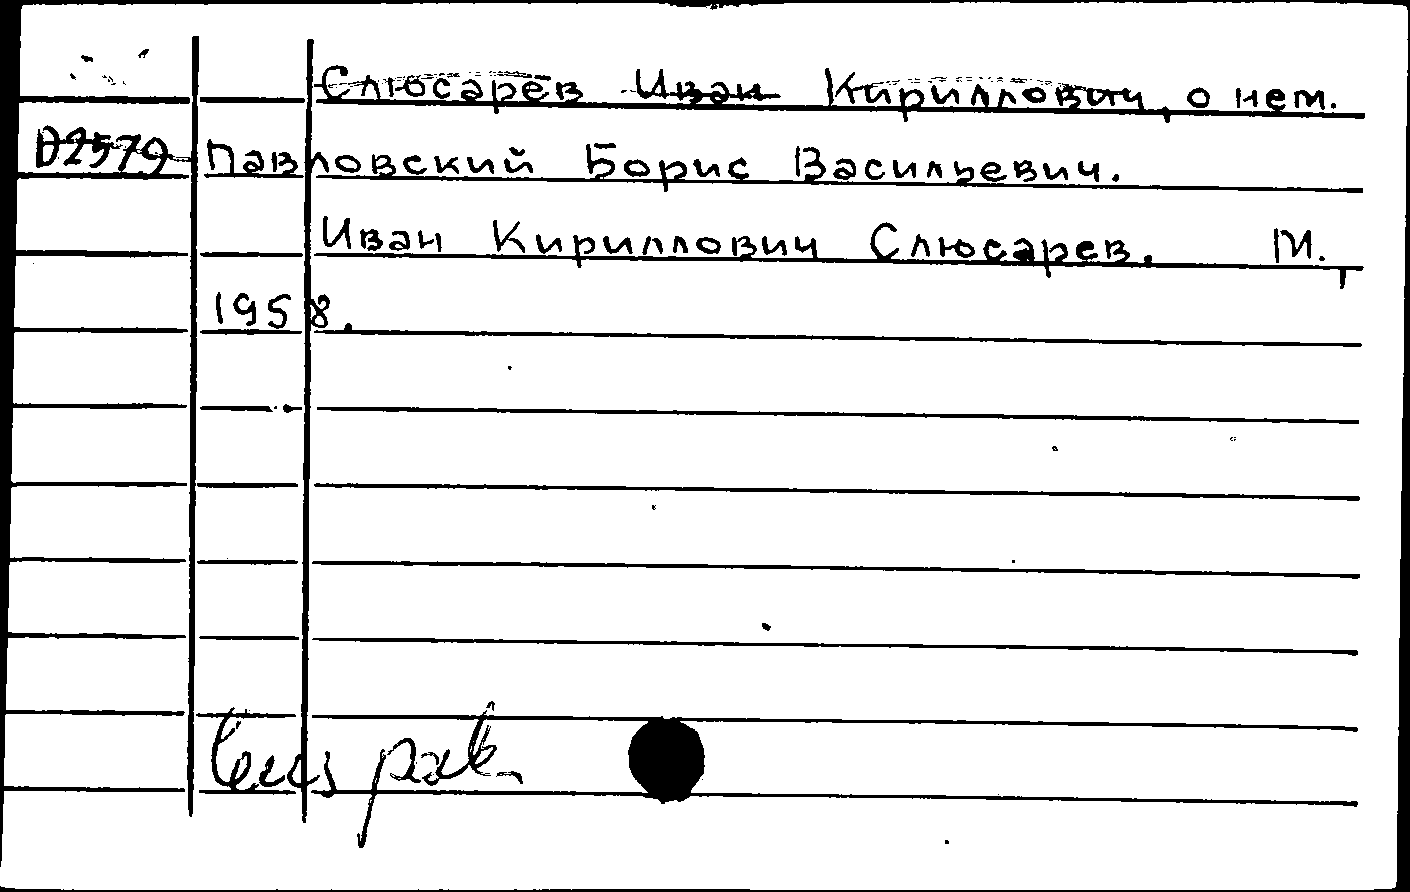 Слюсарев Иван Кириллович, о нем.
D2579 Павловский Борис Васильевич.
Иван Кириллович Слюсарев. М.,
1958.